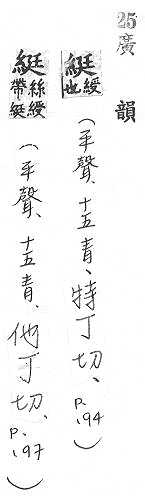 25廣韻
綎綬也(平聲、十五青、特丁切、p.194)
綎絲綬帶綎(平聲、十五青、他丁切、p.197)